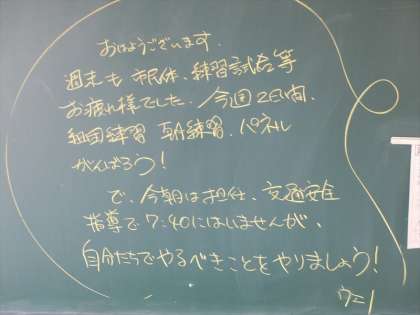 おはようございます.
週末も市民体、練習試合等
お疲れ様でした.今週2日間、
組団練習 、パネル
がんばろう!
で、今朝は担任、交通安全
指導で7:40にはいませんが、
自分たちでやるべきことをやりましょう!